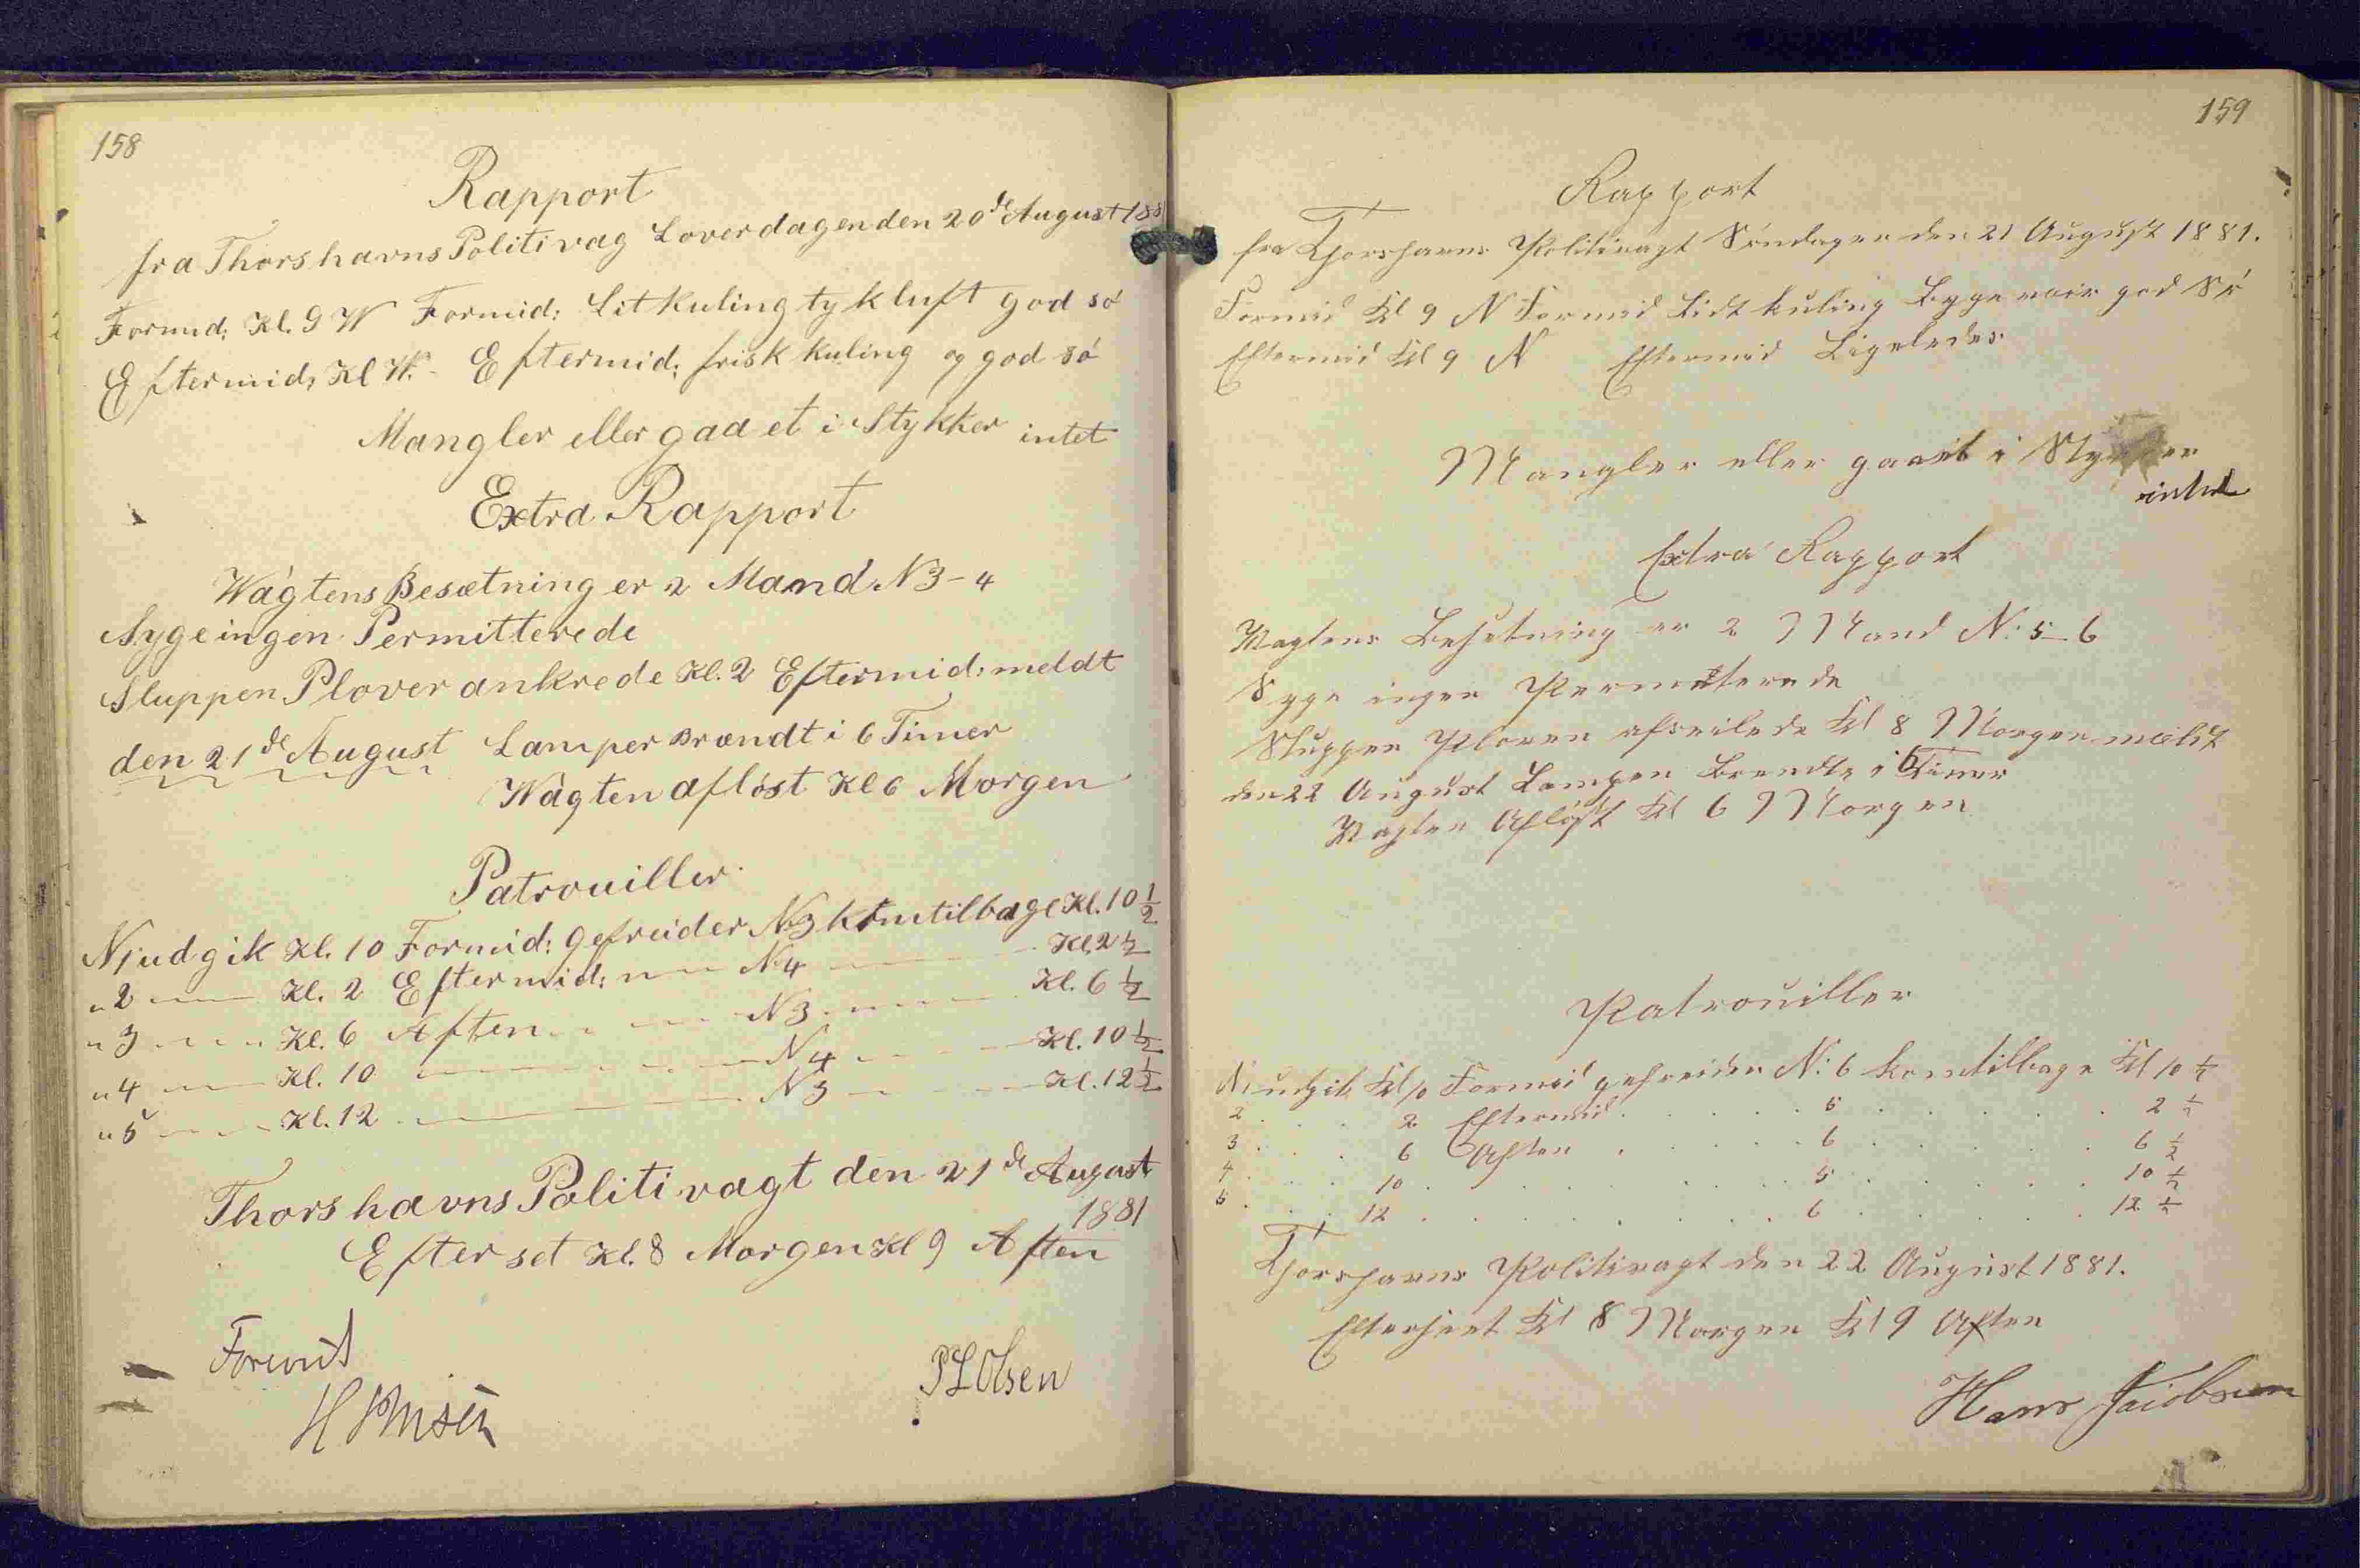 158
Rapport
fra Thorshavns Politivag Loverdagen den 20de August 188
Formid: Kl. 9 W Formid: Lit Kuling tyk luft god só
Eftermid; Kl W. Eftermid: frisk Kuling og god só
Mangler eller gaaet i Stykker intet
Extra Rapport
Wagtens Besætning er 2 Mand N 3-4
Syge ingen Permitterede
Sluppen Plover ankrede Kl. 2 Eftermid: meldt
den 21de August Lamper Brændt i 6 Timer
Wagten afløst Kl 6 Morgen
Patrouiller.
N 1 udgik Kl. 10 Formid: gefreider N 3 kom tilbage Kl. 10 1/2
" 2 — Kl. 2 Eftermid: — N 4 — Kl. 2 1/2
" 3 — Kl. 6 Aften — N 3 — Kl. 6 1/2
" 4 — Kl. 10 — N 4 — Kl. 10 1/2
" 5 — Kl. 12 — N 3 — Kl. 12 1/2
Thorshavns Politivagt den 21de August
1881
Efterset Kl. 8 Morgen Kl 9 Aften
P L Olsen
159
Rapport
fra Thorshavns Politivagt Søndagen den 21 August 1881.
Formid Kl 9 N Formid Lidt Kuling Byge vair god Só
Eftermid Kl 9 N Eftermid Ligeledes
Mangler eller gaaet i Stykker
intet
Extra Rapport
Vagtens Besetning er 2 Mand N: 5-6
Syge ingen Permitterede
Sluppen Ploven afseilede Kl 8 Morgen meldt
den 22 August Lampen Brendte i 6 Timer
Vagten Afløst Kl 6 Morgen
Patrouiller
N 1 udgik Kl 10 Formid gefreider N: 6 kom tilbage Kl 10 1/2
2 . . . 2 Eftermid . . . . 5 . . . . 2 1/2
3 . . . 6 Aften . . . . 6 . . . . 6 1/2
4 . . . 10 . . . . . . 5 . . . . 10 1/2
5 . . . 12 . . . . . . 6 . . . . 12 1/2
Thorshavns Politivagt den 22 August 1881.
Efterseet Kl 8 Morgen Kl 9 Aften
Hans Jacobsen